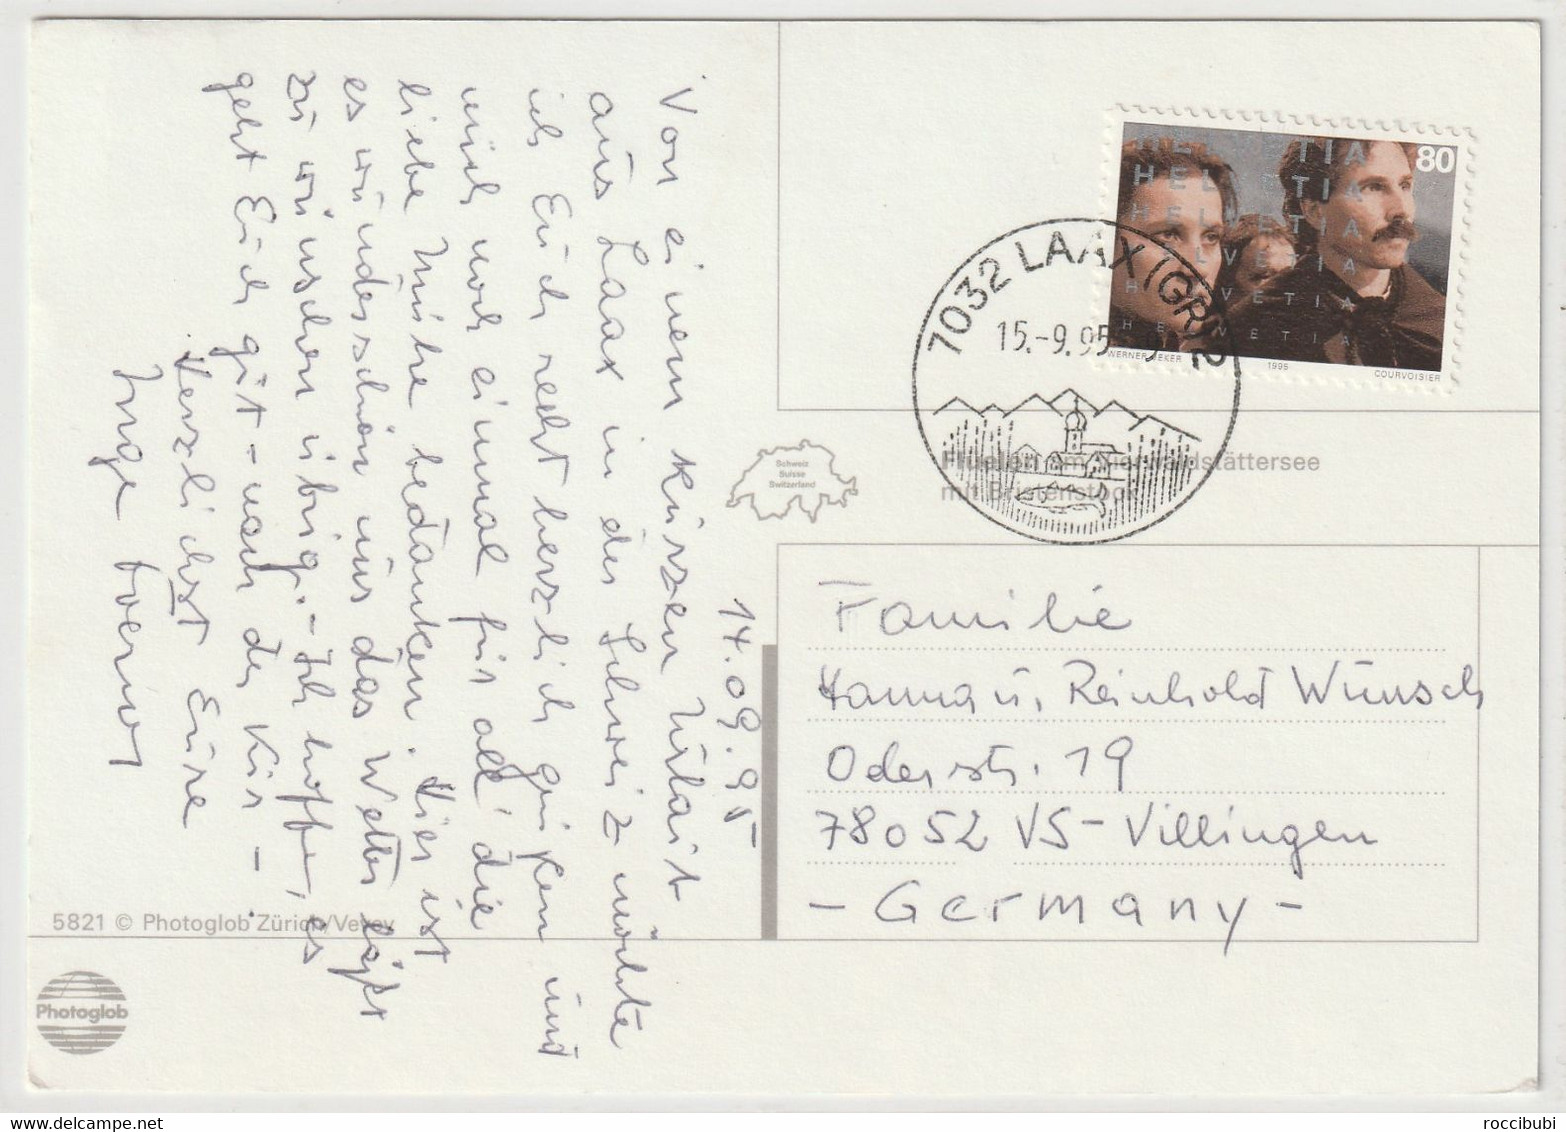 14.09.95
Von einem kurzen Urlaub
aus Laax in der Schweiz möchte
ich Euch recht herzlich grüßen und
mich noch einmal für all' die
liebe Mühe bedanken. Hier ist
es wunderschön nur das Wetter läßt
zu wünschen übrig. - Ich hoffe, es
geht Euch gut - nach der Kur -
Herzlichst Eure
Inge
HELVETIA
HELVETIA
HELVETIA
HELVETIA
HELVETIA
HELVETIA
80
WERNER JEKER
1995
COURVOISIER
7032 LAAX (GR) 2
15.-9.95
Schweiz
Suisse
Switzerland
Flüelen am Vierwaldstättersee
mit Bristenstock
Familie
Hanna u. Reinhold Wunsch
Oderstr. 19
78052 VS-Villingen
- Germany -
5821 © Photoglob Zürich/Vevey
Photoglob
roccibubi